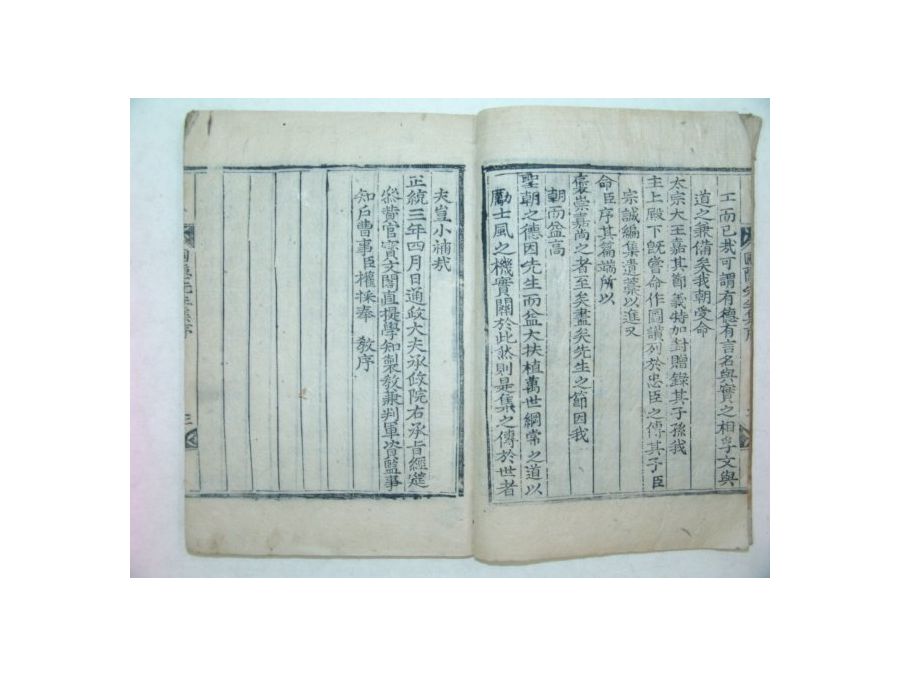 工而已哉可謂有德有言名與實之相孚文與
道之兼備矣我朝受命
太宗大王嘉其節義特加封贈錄其子孫我
主上殿下旣嘗命作圖讚列於忠臣之傳其子臣
宗誠編集遺藁以進又
命臣序其篇端所以
褒崇嘉尚之者至矣盡矣先生之節因我
朝而益高
聖朝之德因先生而益大扶植萬世綱常之道以
勵士風之機實關於此然則是集之傳於世者
夫豈小補哉
正統三年四月日通政大夫承政院右承旨經筵
叅贊官寶文閣直提學知製敎兼判軍資監事
知戶曹事臣權採奉 敎序
三